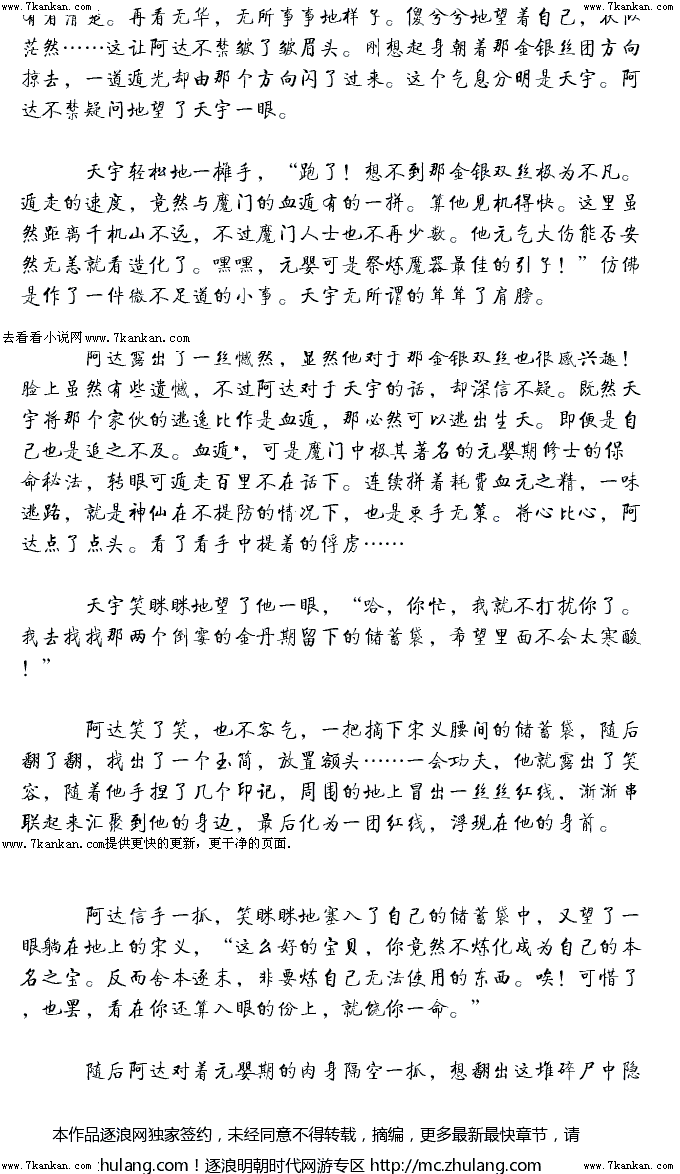 www.7kankan.com www.7kankan.com
有着清楚。再看无华，无所事事地样子。傻兮兮地望着自己，状似
茫然……这让阿达不禁皱了皱眉头。刚想起身朝着那金银丝团方向
掠去，一道遁光却由那个方向闪了过来。这个气息分明是天宇。阿
达不禁疑问地望了天宇一眼。
天宇轻松地一摊手，“跑了！想不到那金银双丝极为不凡。
遁走的速度，竟然与魔门的血遁有的一拼。算他见机得快。这里虽
然距离千机山不远，不过魔门人士也不再少数。他元气大伤能否安
然无恙就看造化了。嘿嘿，元婴可是祭炼魔器最佳的引子！”仿佛
是作了一件微不足道的小事。天宇无所谓的耸耸了肩膀。
去看看小说网www.7kankan.com
阿达露出了一丝憾然，显然他对于那金银双丝也很感兴趣！
脸上虽然有些遗憾，不过阿达对于天宇的话，却深信不疑。既然天
宇将那个家伙的逃逸比作是血遁，那必然可以逃出生天。即便是自
己也是追之不及。血遁•，可是魔门中极其著名的元婴期修士的保
命秘法，转眼可遁走百里不在话下。连续拼着耗费血元之精，一味
逃路，就是神仙在不提防的情况下，也是束手无策。将心比心，阿
达点了点头。看了看手中提着的俘虏……
天宇笑眯眯地望了他一眼，“哈，你忙，我就不打扰你了。
我去找找那两个倒霉的金丹期留下的储蓄袋，希望里面不会太寒酸
！”
阿达笑了笑，也不客气，一把摘下宋义腰间的储蓄袋，随后
翻了翻，找出了一个玉简，放置额头……一会功夫，他就露出了笑
容，随着他手捏了几个印记，周围的地上冒出一丝丝红线，渐渐串
联起来汇聚到他的身边，最后化为一团红线，浮现在他的身前。
www.7kankan.com提供更快的更新，更干净的页面.
阿达信手一抓，笑眯眯地塞入了自己的储蓄袋中，又望了一
眼躺在地上的宋义，“这么好的宝贝，你竟然不炼化成为自己的本
名之宝。反而舍本逐末，非要炼自己无法使用的东西。唉！可惜了
，也罢，看在你还算入眼的份上，就饶你一命。”
随后阿达对着元婴期的肉身隔空一抓，想翻出这堆碎尸中隐
本作品逐浪网独家签约，未经同意不得转载，摘编，更多最新最快章节，请
www.7kankan.com zhulang.com！逐浪明朝时代网游专区 http://mc.zhulang.com www.7kankan.com